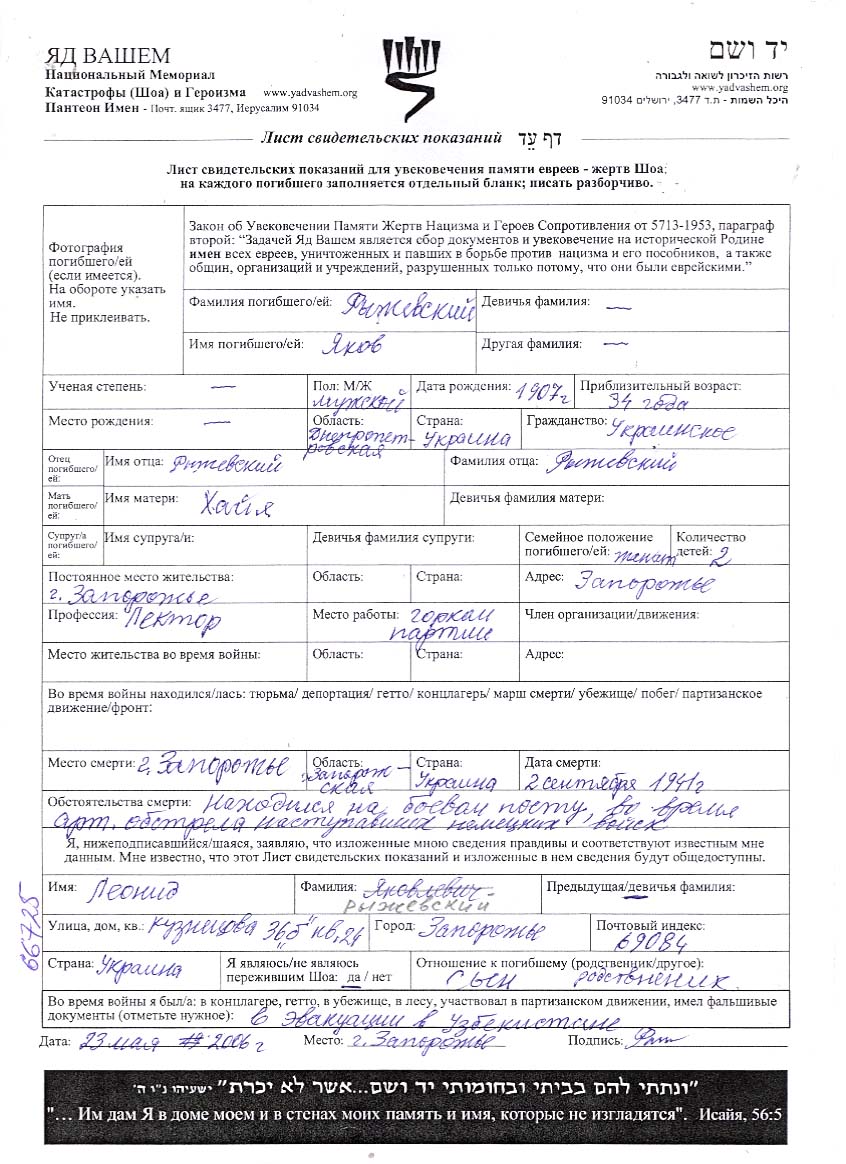 ЯД ВАШЕМ
Национальный Мемориал
Катастрофы (Шоа) и Героизма www.yadvashem.org
Пантеон Имен - Почт. ящик 3477, Иерусалим 91034
יד ושם
רשות הזיכרון לשואה ולגבורה
www.yadvashem.org
היכל השמות - ת.ד 3477, ירושלים 91034
Лист свидетельских показаний דף עד
Лист свидетельских показаний для увековечения памяти евреев - жертв Шоа;
на каждого погибшего заполняется отдельный бланк; писать разборчиво.
Фотография
погибшего/ей
(если имеется).
На обороте указать
имя.
Не приклеивать.
Закон об Увековечении Памяти Жертв Нацизма и Героев Сопротивления от 5713-1953, параграф
второй: “Задачей Яд Вашем является сбор документов и увековечение на исторической Родине
имен всех евреев, уничтоженных и павших в борьбе против нацизма и его пособников, а также
общин, организаций и учреждений, разрушенных только потому, что они были еврейскими.”
Фамилия погибшего/ей: Рыжевский Девичья фамилия: —
Имя погибшего/ей: Яков Другая фамилия: —
Ученая степень: — Пол: М/Ж мужской Дата рождения: 1907г Приблизительный возраст: 34 года
Место рождения: — Область: Днепропет-
ровская Страна: Украина Гражданство: Украинское
Отец погибшего/ей: Имя отца: Рыжевский Фамилия отца: Рыжевский
Мать погибшего/ей: Имя матери: Хайя Девичья фамилия матери:
Супруг/а погибшего/ей: Имя супруга/и: Девичья фамилия супруги: Семейное положение погибшего/ей: женат Количество детей: 2
Постоянное место жительства: г. Запорожье Область: Страна: Адрес: Запорожье
Профессия: Лектор Место работы: горком партии Член организации/движения:
Место жительства во время войны: Область: Страна: Адрес:
Во время войны находился/лась: тюрьма/ депортация/ гетто/ концлагерь/ марш смерти/ убежище/ побег/ партизанское
движение/фронт:
Место смерти: г. Запорожье Область: Запорож-
ская Страна: Украина Дата смерти: 2 сентября 1941г
Обстоятельства смерти: Находился на боевом посту, во время
арт. обстрела наступавших немецких войск
Я, нижеподписавшийся/шаяся, заявляю, что изложенные мною сведения правдивы и соответствуют известным мне
данным. Мне известно, что этот Лист свидетельских показаний и изложенные в нем сведения будут общедоступны.
Имя: Леонид Фамилия: Яковлевич- Предыдущая/девичья фамилия:
Рыжевский
Улица, дом, кв.: Кузнецова 36"б" кв, 24 Город: Запорожье Почтовый индекс: 69084
Страна: Украина Я являюсь/не являюсь пережившим Шоа: да / нет Отношение к погибшему (родственник/другое): сын родственник.
Во время войны я был/а: в концлагере, гетто, в убежище, в лесу, участвовал в партизанском движении, имел фальшивые
документы (отметьте нужное): в эвакуации в Узбекистане
Дата: 23 мая 2006 г Место: г. Запорожье Подпись:
66725
"ונתתי להם בביתי ובחומותי יד ושם...אשר לא יכרת" ישעיהו נ"ו ה'
"... Им дам Я в доме моем и в стенах моих память и имя, которые не изгладятся". Исайя, 56:5